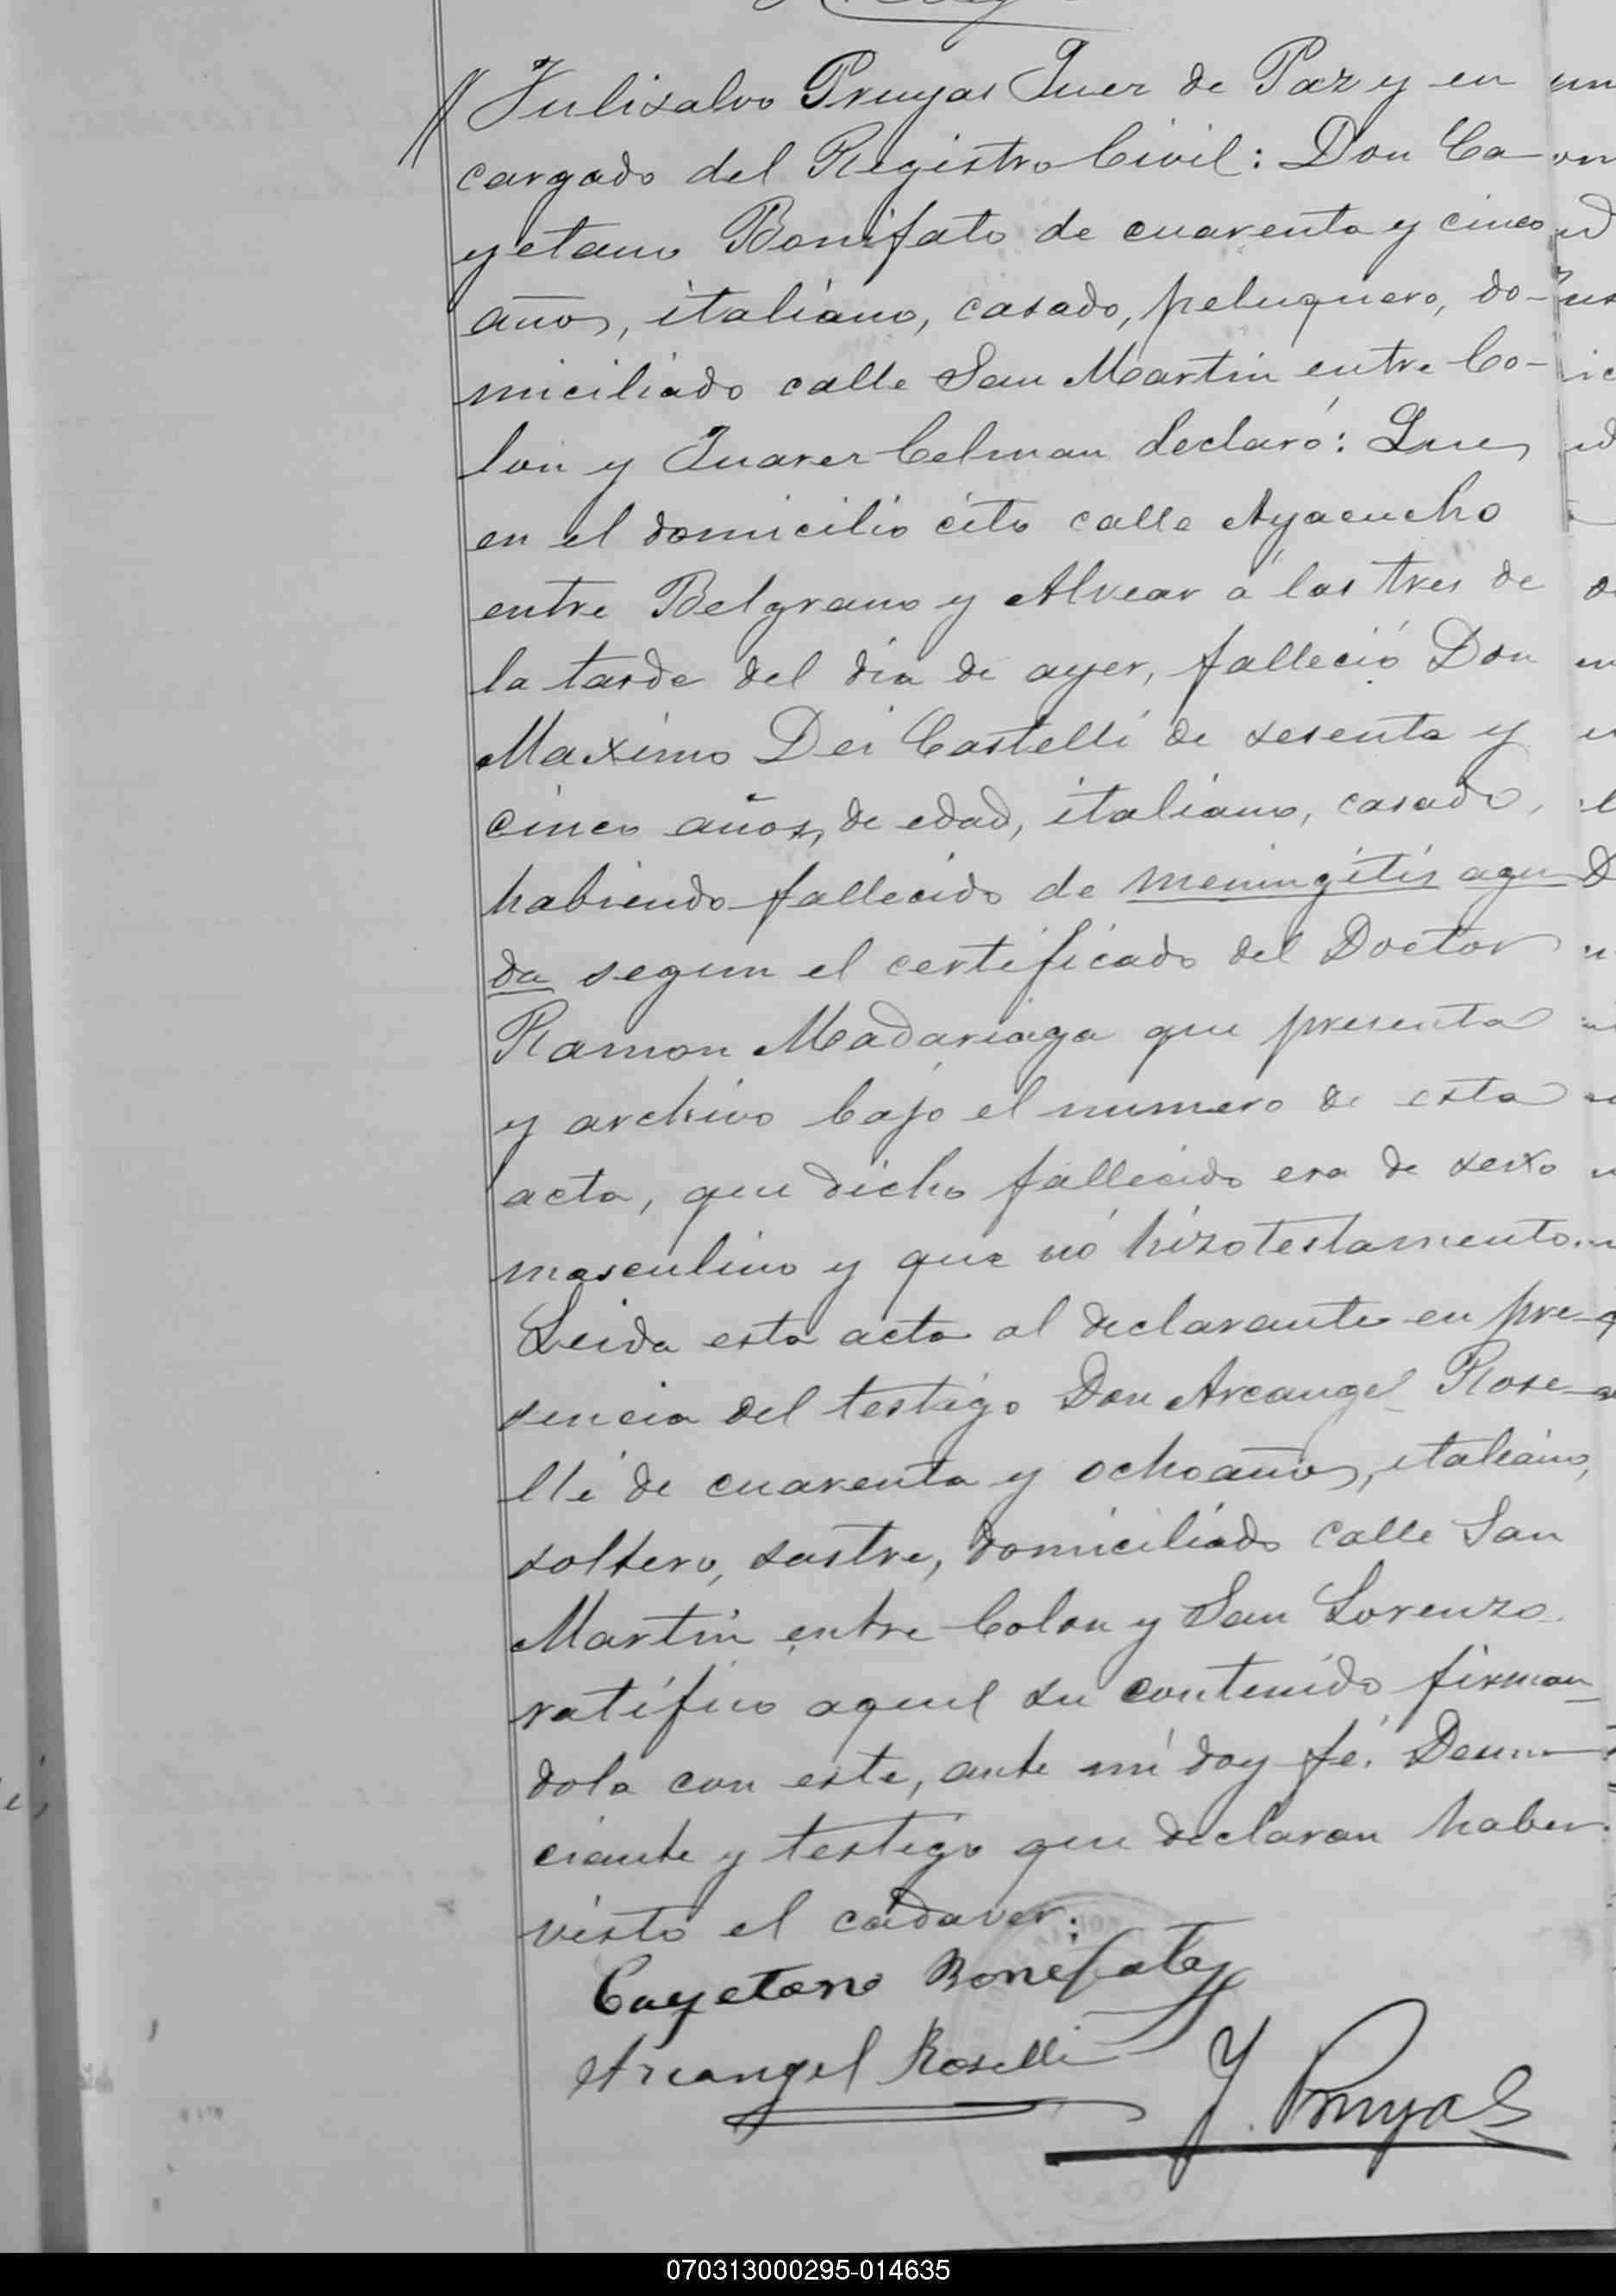 Julisalvo Pruyas Juez de Paz y en
cargado del Registro Civil: Don Ca-
yetano Bonifato de cuarenta y cinco
años, italiano, casado, peluquero, do-
miciliado calle San Martin entre Co-
lon y Juarez Celman declaró: Que
en el domicilio cito calle Ayacucho
entre Belgrano y Alvear á las tres de
la tarde del dia de ayer, falleció Don
Maximo Dei Castelli de sesenta y
cinco años, de edad, italiano, casado,
habiendo fallecido de meningitis agu
da segun el certificado del Doctor
Ramon Madariaga que presenta
y archivo bajo el numero de esta
acta, que dicho fallecido era de sexo
masculino y que nó hizo testamento.
Leida esta acta al declarante en pre-
sencia del testigo Don Arcangel Rose-
lli de cuarenta y ocho años, italiano,
soltero, sastre, domiciliado calle San
Martin entre Colon y San Lorenzo
ratifico aquel su contenido firman
dola con este, ante mí doy fé. Denun-
ciante y testigo que declaran haber
visto el cadaver.
Cayetano Bonifato
Arcangel Roselli
J. Pruyas
070313000295-014635